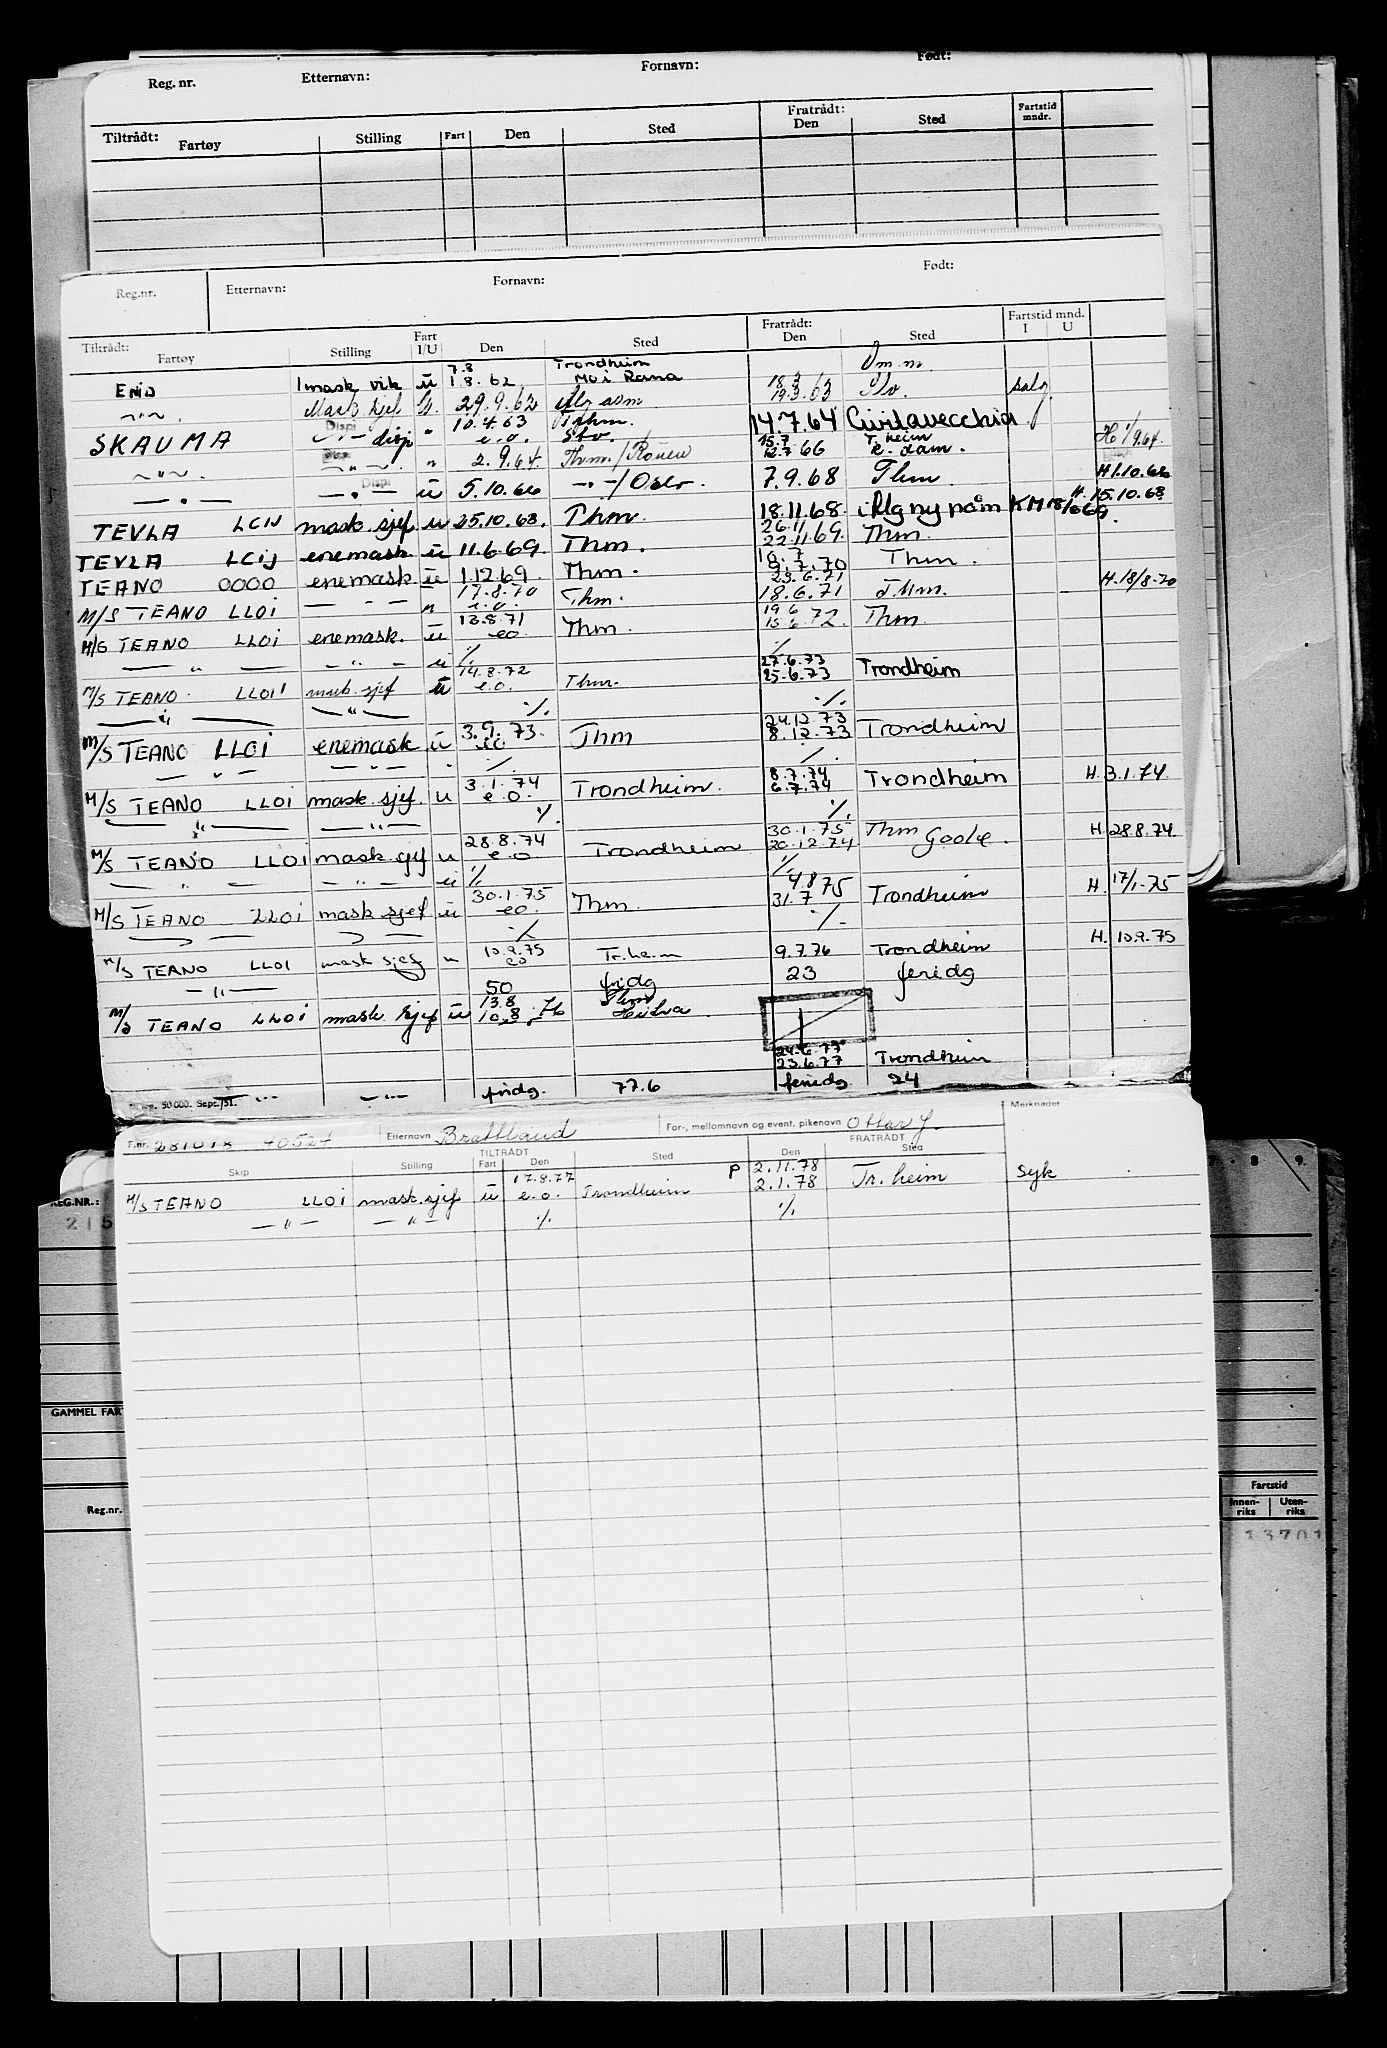 Reg. nr. Etternavn: Fornavn: Født:
Tiltrådt: Fratrådt: Fartstid mndr.
Fartøy Stilling Fart Den Sted Den Sted
Reg.nr. Etternavn: Fornavn: Født:
Tiltrådt: Fratrådt: Fartstid mnd.
Fartøy Stilling Fart I/U Den Sted Den Sted I U
7.8 Trondheim
ENID 1 mask vik u 1.8.62 Mo i Rana 18.3 19.3.63 salg
Mask sjef 29.9.62
SKAUMA Dispi disp " 10.4.63 e.o. Thm. Stv 14.7.64 Civitavecchia
" 2.9.64. Thm./Rouen 15.7 12.7 66 T.heim R.dam. H 1/9.64.
Dispi u 5.10.66 - " -/Oslo. 7.9.68 Thm H 1.10.66
TEVLA LCIJ mask sjef u 25.10.68. Thm. 18.11.68 H. 15.10.68
TEVLA LCIJ enemask u 11.6.69. Thm. 26.11 22.11.69. Thm.
TEANO OOOO enemask u 1.12.69. Thm. 10.7 9.7.70 Thm.
M/S TEANO LLOI — " — " 17.8.70 e.o. Thm. 23.6.71 18.6.71 Thm. H. 18/8-70
M/S TEANO LLOI enemask. u 13.8.71 eo Thm. 19.6 15.6.72. Thm.
— " — — " — u ./. ./.
M/S TEANO LLOI mask. sjef u 14.8.72 e.o. Thm. 27.6.73 25.6.73 Trondheim
— " — — " — ./. ./.
M/S TEANO LLOI enemask u 3.9.73. eo Thm 24.12.73 8.12.73 Trondheim
— " — — " — " ./. ./.
M/S TEANO LLOI mask. sjef. u 3.1.74 e.o. Trondheim. 8.7.74 6.7.74 Trondheim H. 3.1.74.
— " — — " — ./. ./.
M/S TEANO LLOI mask. sjef u 28.8.74 e.o. Trondheim 30.1.75 20.12.74 Thm Goole. H. 28.8.74.
— " — — " — u ./. ./.
M/S TEANO LLOI mask sjef u 30.1.75 eo. Thm. 4.8 31.7 75 Trondheim H. 17/1-75
./. ./.
M/S TEANO LLOI mask sjef " 10.9.75 eo Tr.heim 9.7.76 Trondheim H. 10.9.75
— " — 50 fridg 23 feridg
M/S TEANO LLOI mask. sjef u 13.8 10.8.76 Thm
24.6.77 23.6.77 Trondheim
— " — — " — fridg. 77.6 feriedg. 24
50 000. Sept. /51.
F.nr. 281018 40524 Etternavn Brattland For-, mellomnavn og event. pikenavn Ottar J. Merknader
TILTRÅDT FRATRÅDT
Skip Stilling Fart Den Sted Den Sted
M/S TEANO LLOI mask.sjef u 17.8.77 e.o. Trondheim P 2.11.78 2.1.78 Tr.heim Syk
— " — — " — ./. ./.
REG.NR.:
215
8 9.
GAMMEL FART
Reg.nr.
Fartstid
Innen-riks Uten-riks
13701